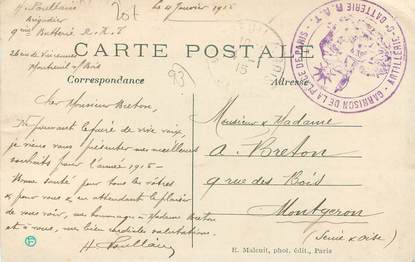 H. Paullain
Brigadier
9me Batterie R.A.T.
26 rue de Vincennes
Montreuil s/ Bois
le 4 Janvier 1915
201
CARTE POSTALE
Correspondance
Adresse
93
GARNISON DE LA PLACE DE PARIS
ARTILLERIE BATTERIE R.A.T.
15
Cher Monsieur Breton,
Ne pouvant le faire de vive voix,
je viens vous présenter mes meilleurs
souhaits pour l'année 1915 -
Bonne santé pour tous les vôtres
& pour vous & en attendant le plaisir
de vous voir, mes hommages à Madame Breton
et à vous, mes bien cordiales salutations.
H. Paullain
Monsieur & Madame
A. Breton
9 rue des Bois
Montgeron
(Seine & Oise)
E. Malcuit, phot. édit., Paris